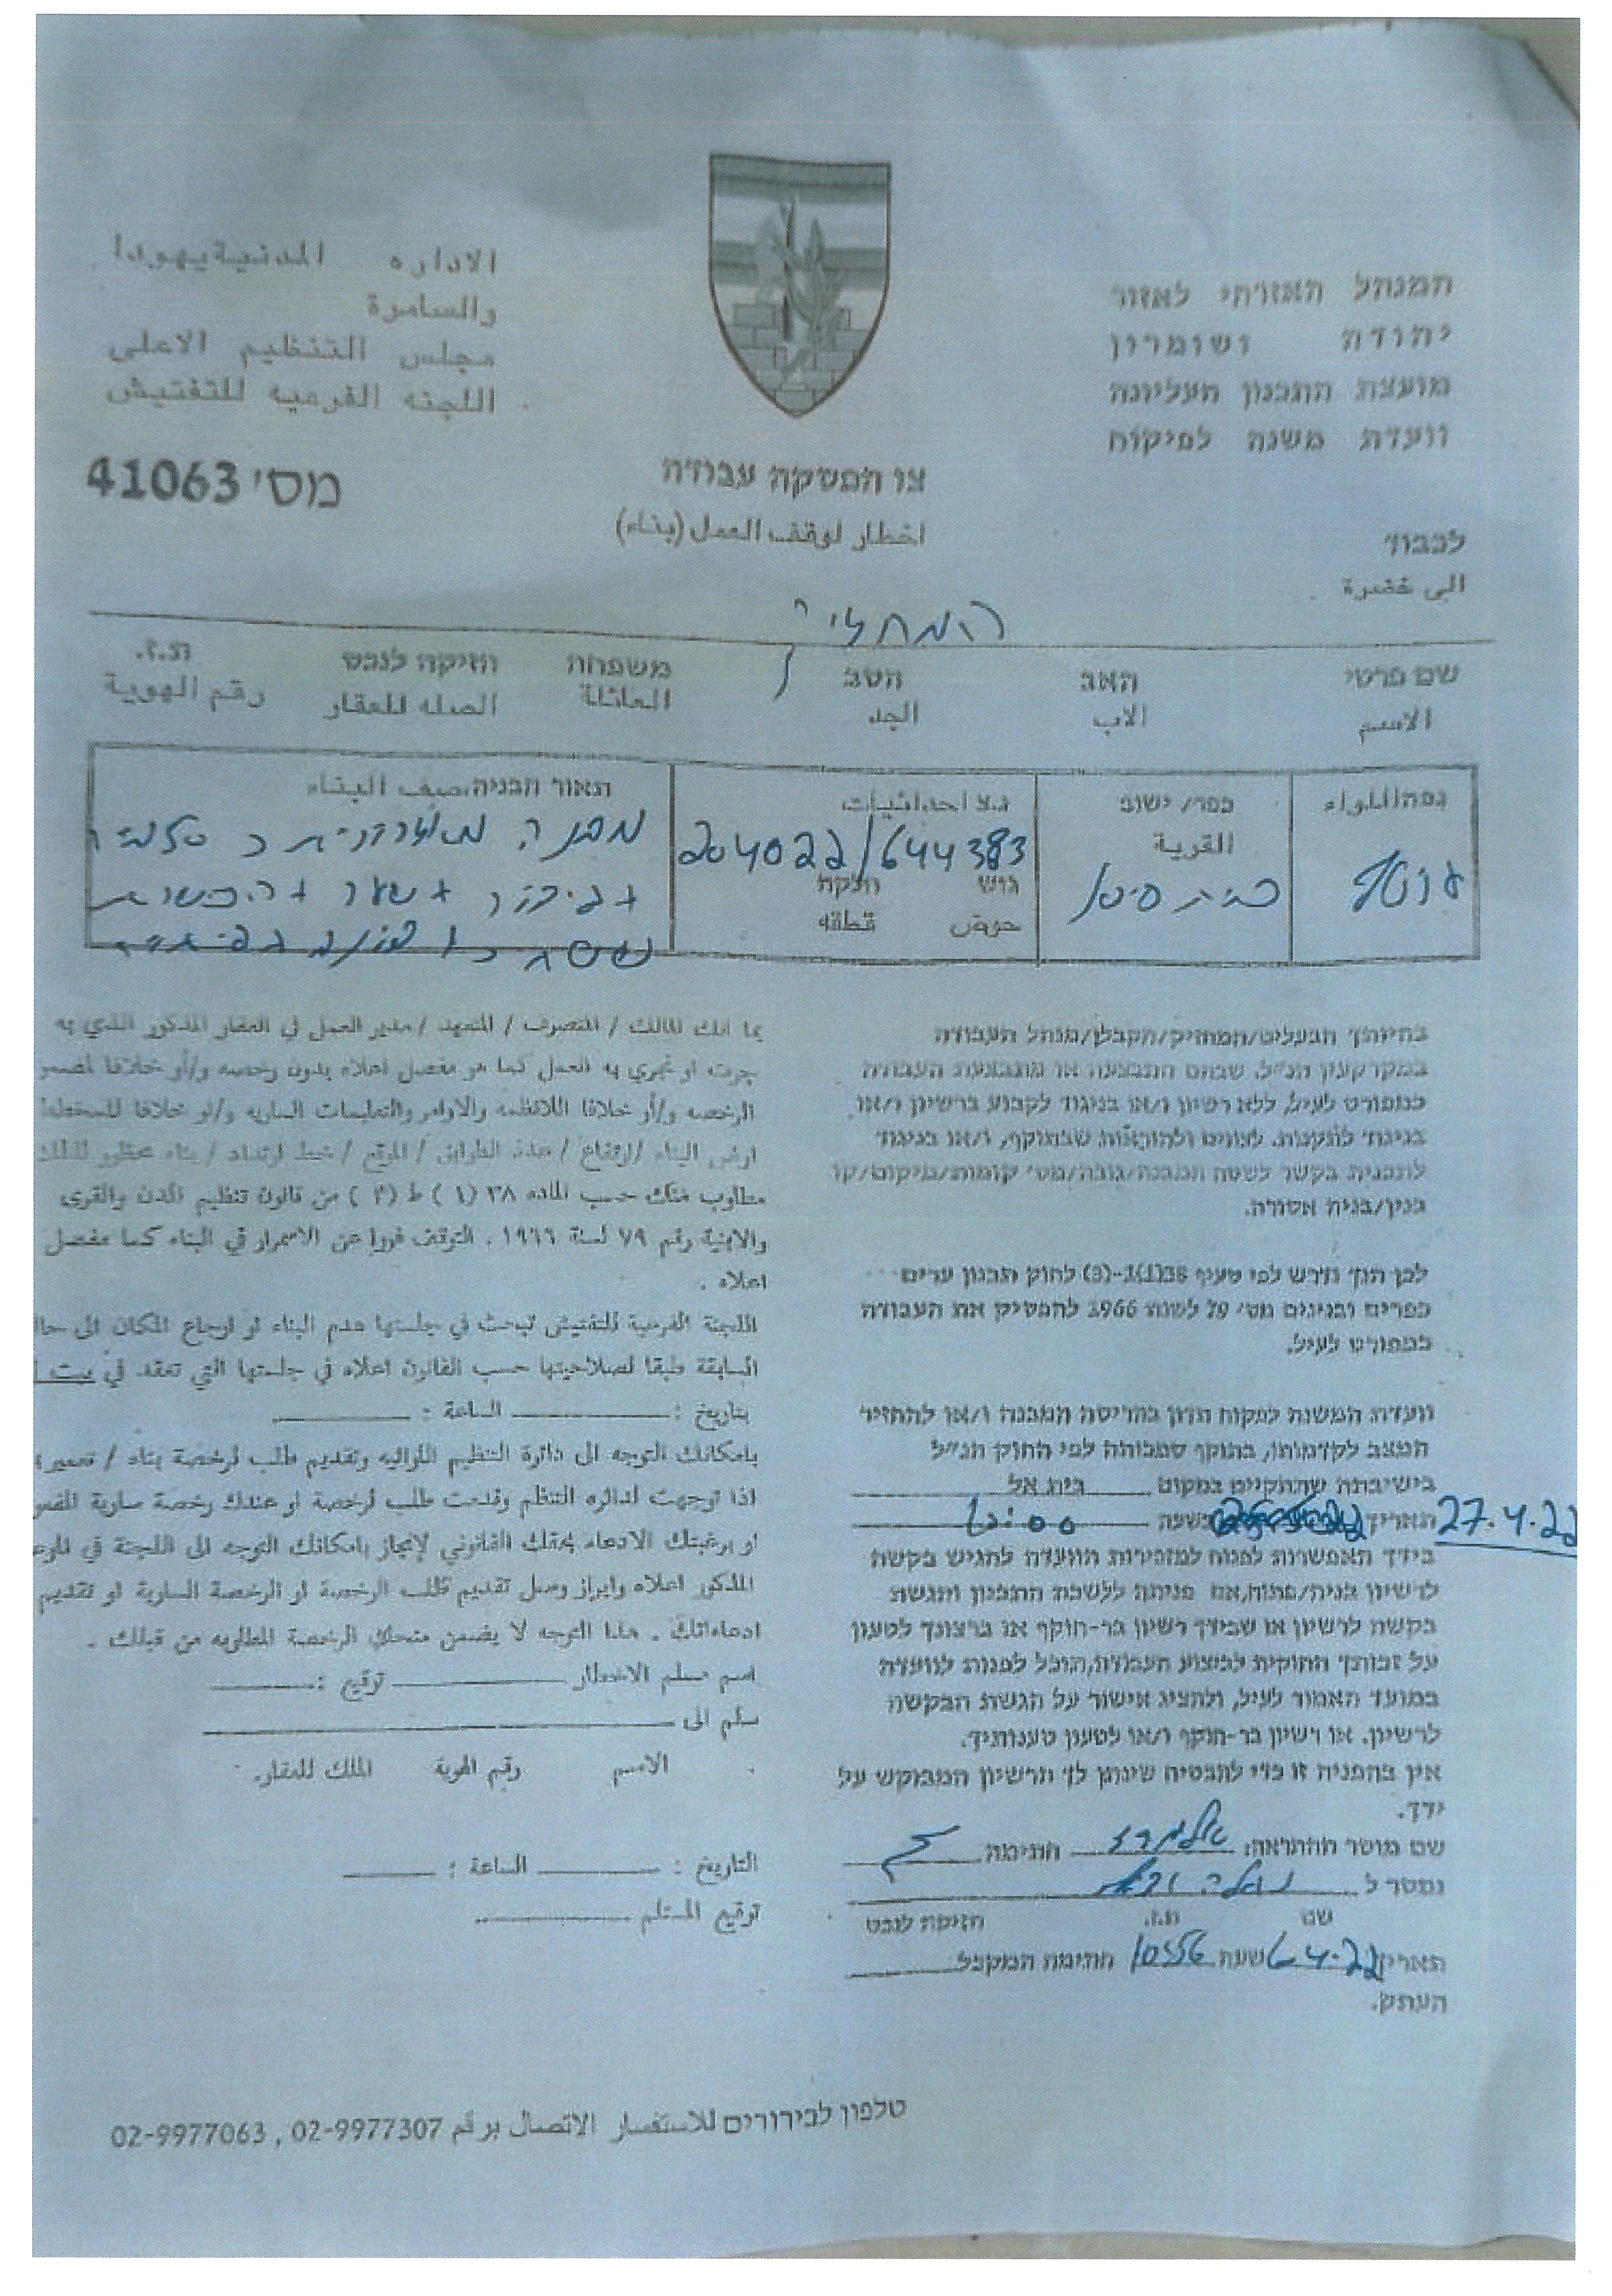 המנהל האזרחי לאזור
יהודה ושומרון
מועצת התכנון העליונה
וועדת משנה לפיקוח
الاداره المدنية يهودا
والسامرة
مجلس التنظيم الاعلى
اللجنه الفرعيه للتفتيش
צו הפסקה עבודה
اخطار لوقف العمل (بناء)
מס׳ 41063
לכבוד
الى حضرة
המחזיק
שם פרטי האב הסב משפחה הזיקה לנכס ת.ז.
الاسم الاب الجد العائلة الصله للعقار رقم الهوية
נפה/اللواء
כפר/ ישוב
القرية
נ.צ احداثيات
204022/644383
גוש חלקה
حوض قطعه
תאור הבניה،صف البناء
מבנה
+ שער +
בהיותך הבעלים/המחזיק/הקבלן/מנהל העבודה
במקרקעין הנ״ל, שבהם התבצעה או מתבצעת העבודה
כמפורט לעיל, ללא רשיון ו/או בניגוד לקבוע ברשיון ו/או
בניגוד לתקנות, לצווים ולהוראות שבתוקף, ו/או בניגוד
לתכנית בקשר לשטח המבנה/גובה/מס׳ קומות/מיקום/קו
בנין/בניה אסורה.
לכן הנך נדרש לפי סעיף 38(1)-(3) לחוק תכנון ערים
כפרים ובנינים מס׳ 79 לשנת 1966 להפסיק את העבודה
כמפורט לעיל.
וועדת המשנה לפקוח תדון בהריסת המבנה ו/או להחזיר
המצב לקדמותו, בתוקף סמכותה לפי החוק הנ״ל
בישיבתה שתתקיים במקום בית אל
תאריך 27.4.22 בשעה 10:00
בידך האפשרות לפנות למזכירות הוועדה להגיש בקשה
לרשיון בניה/פתוח, אם פניתה ללשכת התכנון והגשת
בקשה לרשיון או שבידך רשיון בר-תוקף או ברצונך לטעון
על זכותך החוקית לביצוע העבודה, תוכל לפנות לוועדה
במועד האמור לעיל, ולהציג אישור על הגשת הבקשה
לרשיון, או רשיון בר-תוקף ו/או לטעון טענותיך.
אין בהפניה זו כדי להבטיח שינתן לך הרשיון המבוקש על
ידך.
שם מוסר ההתראה: חתימה
נמסר ל
שם ת.ז. הזיקה לנכס
תאריך 6.4.22 שעה 10:56 חתימה המקבל
העתק.
بما انك المالك / المتصرف / المتعهد / مدير العمل في العقار المذكور الذي به
جرت او تجري به العمل كما هو مفصل اعلاه بدون رخصه و/أو خلافا
الرخصه و/أو خلافا للانظمه والاوامر والتعليمات الساريه و/او خلافا للمخطط
ارض البناء / ارتفاع / عدد الطوابق / الموقع / خط ارتداد / بناء محظور لذلك
مطلوب منك حسب الماده ٣٨ (١) ط (٣) من قانون تنظيم المدن والقرى
والابنية رقم ٧٩ لسنة ١٩٦٦ . التوقف فورا عن الاسمرار في البناء كما مفصل
اعلاه .
اللجنة الفرعية للتفتيش تبحث في جلستها هدم البناء او ارجاع المكان الى
السابقة طبقا لصلاحيتها حسب القانون اعلاه في جلستها التي تعقد في بيت
بتاريخ : الساعة :
بامكانك التوجه الى دائرة التنظيم اللوائيه وتقديم طلب لرخصة بناء / تعمير
اذا توجهت لدائره التنظم وقدمت طلب لرخصة او عندك رخصة سارية
او برغبتك الادعاء بحقك القانوني لإنجاز بامكانك التوجه الى اللجنة في
المذكور اعلاه وابراز وصل تقديم طلب الرخصة او الرخصة السارية او تقديم
ادعاءاتك . هذا التوجه لا يضمن منحك الرخصة المطلوبه من قبلك .
اسم مسلم الاخطار توقيع :
سلم الى
الاسم رقم الهوية الملك للعقار.
التاريخ : الساعة :
توقيع المستلم
טלפון לבירורים للاستفسار الاتصال برقم 02-9977307 , 02-9977063